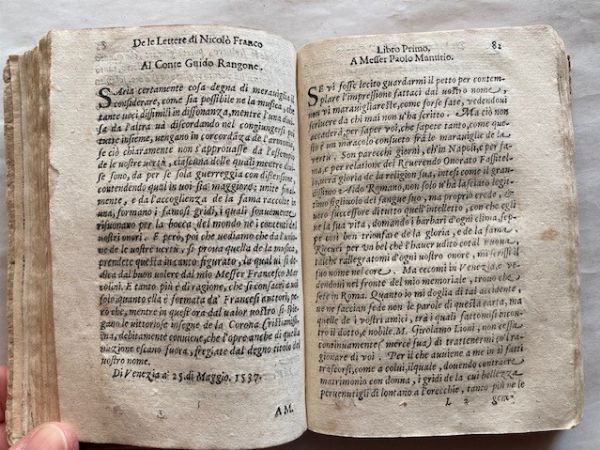 De le Lettere di Nicolò Franco
Al Conte Guido Rangone.
SAria certamente cosa degna di maraviglia il
considerare, come sia possibile ne la musica, che
tante voci dissimili in dissonanza, mentre l'una divi-
sa da l'altra và discordando nel congiungersi poi
tutte insieme, vengano in concordanza de l'armonia,
se ciò chiaramente non s'approvasse da l'essempio
de le vostre vertù, ciascuna delle quali mentre divi-
se sono, da per se sola guerreggia con dissensione,
contendendo qual in voi sia maggiore; unite final-
mente, e da l'accoglienza de la fama raccolte in
una, formano i famosi gridi, i quali soavemente
risuonano per la bocca del mondo nè i concenti dei
vostri onori. E però, poi che vediamo che da l'unio-
ne de le vostre vertù, si prova quella de la musica,
prendete questa incanto figurato, la qual vi si de-
dica dal buon volere dal mio Messer Francesco Mar
colini. E tanto più è di ragione, che si consacri a voi
solo, quanto ella è formata da' Francesi auttori, per-
cio che, mentre in quest'ora dal valor vostro si spie-
gano le vittoriose insegne de la Corona Cristianissi-
ma, debitamente conviene, che l'opre anche di quella
nazione escano fuora, fregiate dal degno titolo del
vostro nome.
Di Venezia a' 25. di Maggio. 1537.
A M.
Libro Primo. 82
A Messer Paolo Manutio.
SE vi fosse lecito guardarmi il petto per contem-
plare l'impressione fattaci dal vostro nome,
non vi maravigliareste, come forse fate, vedendovi
scrivere da chi mai non v'ha scritto. Ma ciò non
accaderà, per saper voi, che sapete tanto, come questo è
un miracolo consueto frà le maraviglie de la
vertù. Son parecchi giorni, ch'in Napoli, per fa-
ma, e per relazione del Reverendo Onorato Fassitel-
lo, vera gloria de la religion sua, intesi come il gran-
dissimo Aldo Romano, non solo v'ha lasciato legit-
timo figliuolo del sangue suo, ma proprio erede, e
vero successore di tutto quell'intelletto, con che egli
ne la sua vita, domando i barbari d'ogni clima, sep-
pe così ben trionfar de la gloria, e de la fama.
Ricevei per un bel che l'haver udito cotal nuova,
talche rallegratomi d'ogni vostro onore, mi scrissi il
suo nome nel core. Ma ecomi in Venezia e ve-
dendovi nel fronte del mio memoriale, trovo che
sete in Roma. Quanto io mi doglia di tal accidente,
ve ne faccian fede non le parole di questa carta, ma
quelle de i vostri amici, trà i quali fattomisi incon-
tro il dotto, e nobile. M. Girolamo Lioni, non cessa
continuamente (mercè sua) di trattenermi in ra-
gionare di voi. Per il che auviene a me in tanti
trascorsi, come a colui, il quale, dovendo contraere
matrimonio con donna, i gridi de la cui bellezza
pervenutigli di lontano a l'orecchie, tanto più ne le
L 2 gem-